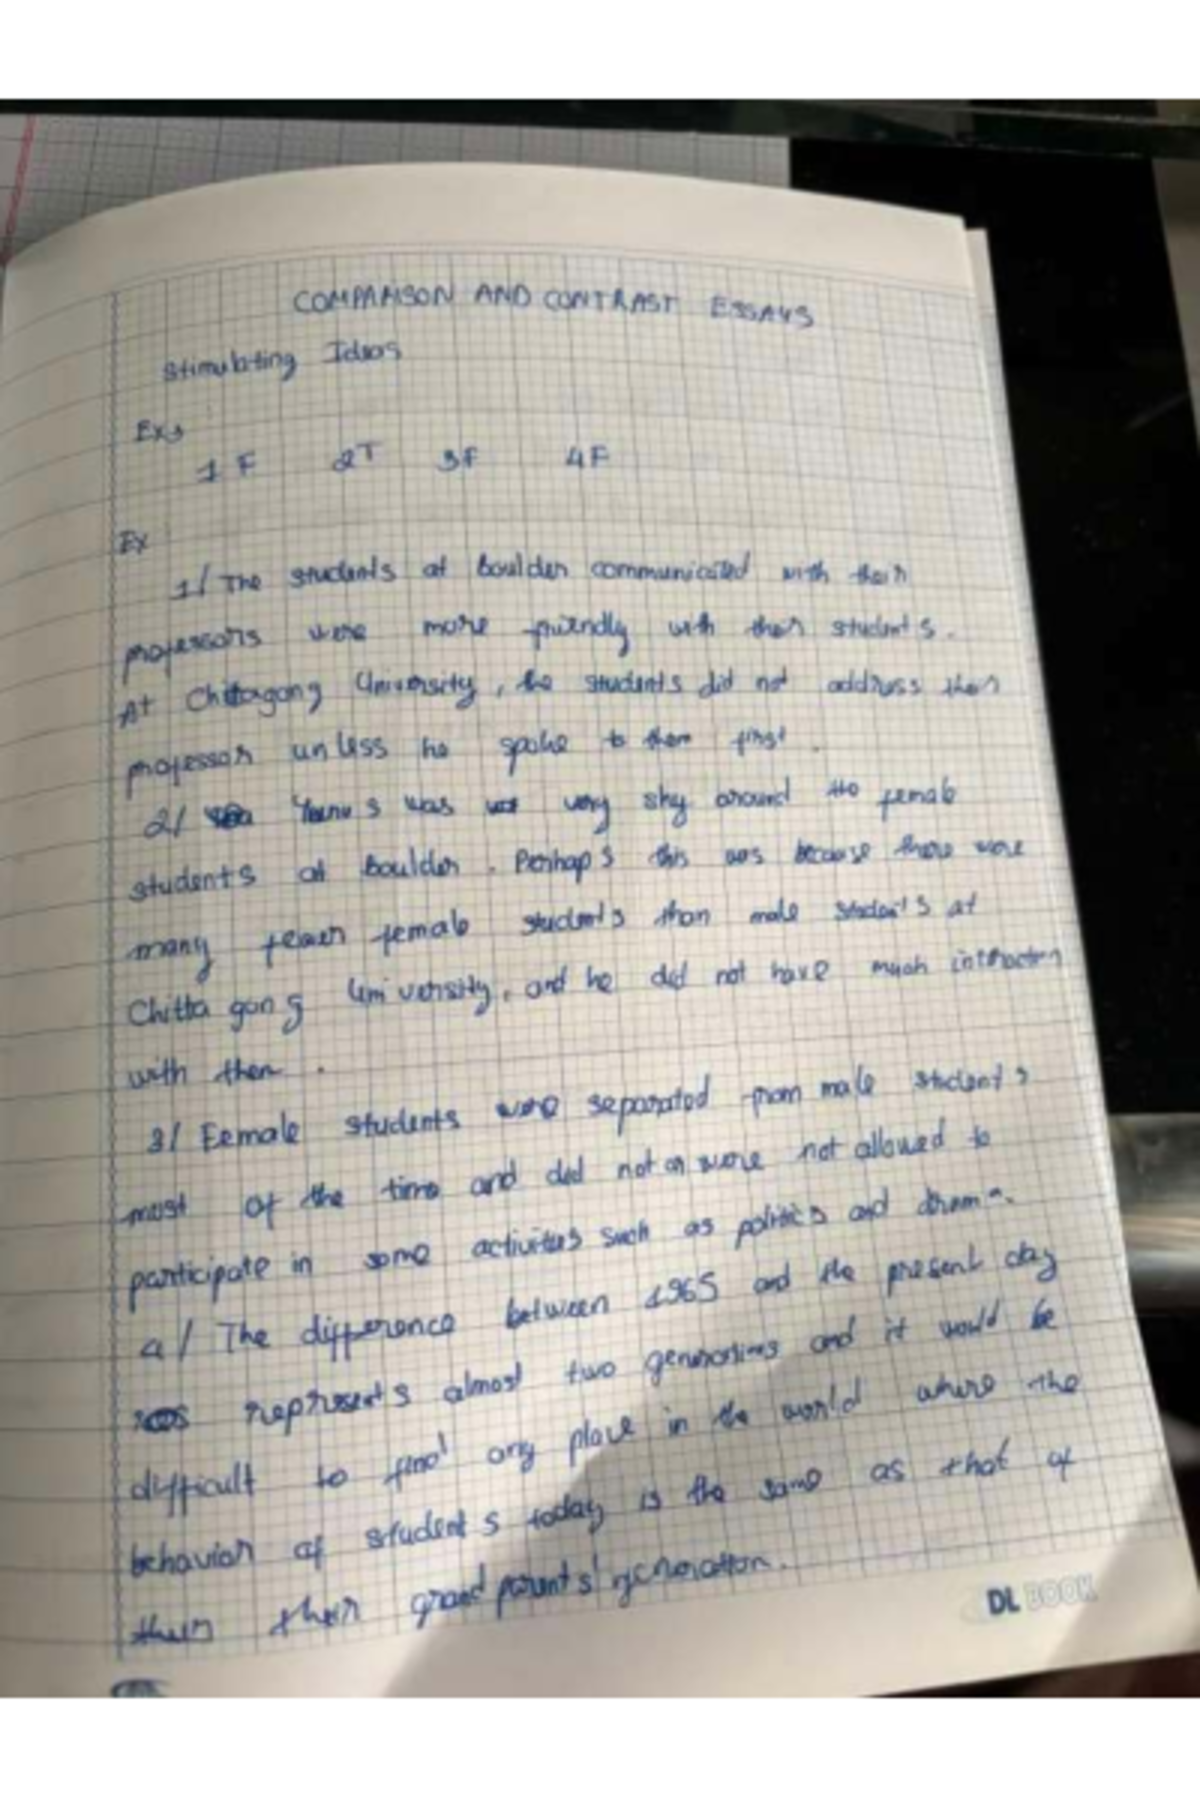 COMPARISON AND CONTRAST ESSAYS
Stimulating Ideas
Ex
1 F 2T 3F 4F
Ex
1/ The students at Boulder communicated with their
professors were more friendly with their students.
At Chittagong University, the students did not address their
professor unless he spoke to them first.
2/ Yunus was very shy around the female
students at Boulder. Perhaps this was because there were
many fewer female students than male students at
Chitta gong University, and he did not have much interaction
with them.
3/ Female students were separated from male students
most of the time and did not or were not allowed to
participate in some activities such as politics and drama.
4/ The difference between 1965 and the present day
represents almost two generations and it would be
difficult to find any place in the world where the
behavior of students today is the same as that of
their grand parents' generation.
DL BOOK